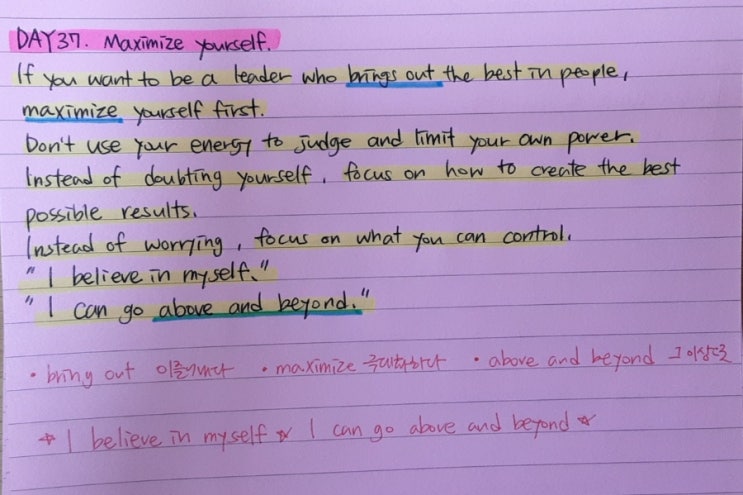 DAY37. Maximize yourself.
If you want to be a leader who brings out the best in people,
maximize yourself first.
Don't use your energy to judge and limit your own power.
Instead of doubting yourself, focus on how to create the best
possible results.
Instead of worrying, focus on what you can control.
" I believe in myself."
" I can go above and beyond."
• bring out 이끌어내다 • maximize 극대화하다 • above and beyond 그 이상으로
☆ I believe in myself ☆ I can go above and beyond ☆